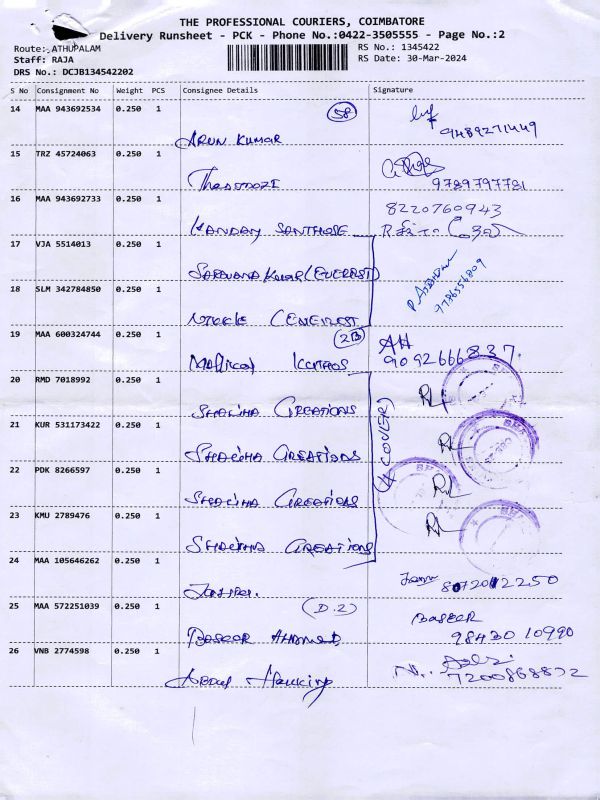 THE PROFESSIONAL COURIERS, COIMBATORE
Delivery Runsheet - PCK - Phone No.:0422-3505555 - Page No.:2
Route: ATHUPALAM
Staff: RAJA
DRS No.: DCJB134542202
RS No.: 1345422
RS Date: 30-Mar-2024
S No Consignment No Weight PCS Consignee Details Signature
14 MAA 943692534 0.250 1 58
ARUN KUMAR 9489271449
15 TRZ 45724063 0.250 1
9789797781
16 MAA 943692733 0.250 1 8220760943
KANDAN SANTHOSE
17 VJA 5514013 0.250 1
SARAVANA KUMAR (EVEREST) 9786556809
18 SLM 342784850 0.250 1
19 MAA 600324744 0.250 1 AH
9092666837
20 RMD 7018992 0.250 1
SHALIHA CREATIONS
21 KUR 531173422 0.250 1
SHALIHA CREATIONS
22 PDK 8266597 0.250 1
SHALIHA CREATIONS
23 KMU 2789476 0.250 1
SHALIHA CREATIONS
(4 COVER)
24 MAA 105646262 0.250 1
25 MAA 572251039 0.250 1 (D.2) BASEER
BASEER AHAMED 98430 10990
26 VNB 2774598 0.250 1
ABDUL 7200868832